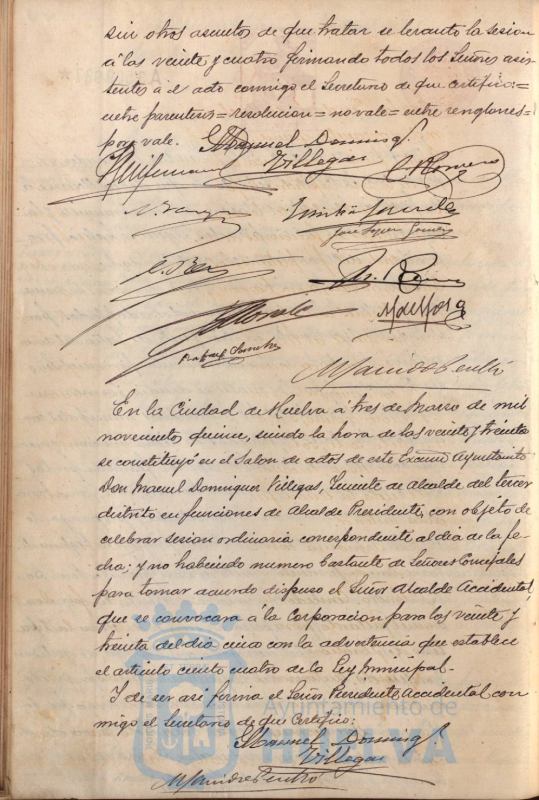 sin otros asuntos de que tratar se levantó la sesion
á las veinte y cuatro firmando todos los Señores asis-
tentes a el acto conmigo el Secretario de que certifico:=
entre parentesis= resolucion= no vale= entre renglones=
por vale.
Manuel Doming.
Villegas
Romero
José López Gómez
M de Mora
Rafael
En la Ciudad de Huelva á tres de Marzo de mil
novecientos quince, siendo la hora de las veinte y treinta
se constituyó en el Salon de actos de este Excmo Ayuntamto
Don Manuel Dominguez Villegas, Teniente de Alcalde del tercer
distrito en funciones de Alcalde Presidente, con objeto de
celebrar sesion ordinaria correspondiente al dia de la fe-
cha; y no habiendo numero bastante de Señores Concejales
para tomar acuerdo dispuso el Señor Alcalde Accidental
que se convocara á la Corporacion para las veinte y
treinta del dia cinco con la advertencia que establece
el articulo ciento cuatro de la Ley Municipal.-
Y de ser asi firma el Señor Presidente Accidental con-
migo el Secretario de que Certifico:
Manuel Doming.
Villegas
Ayuntamiento de
HUELVA